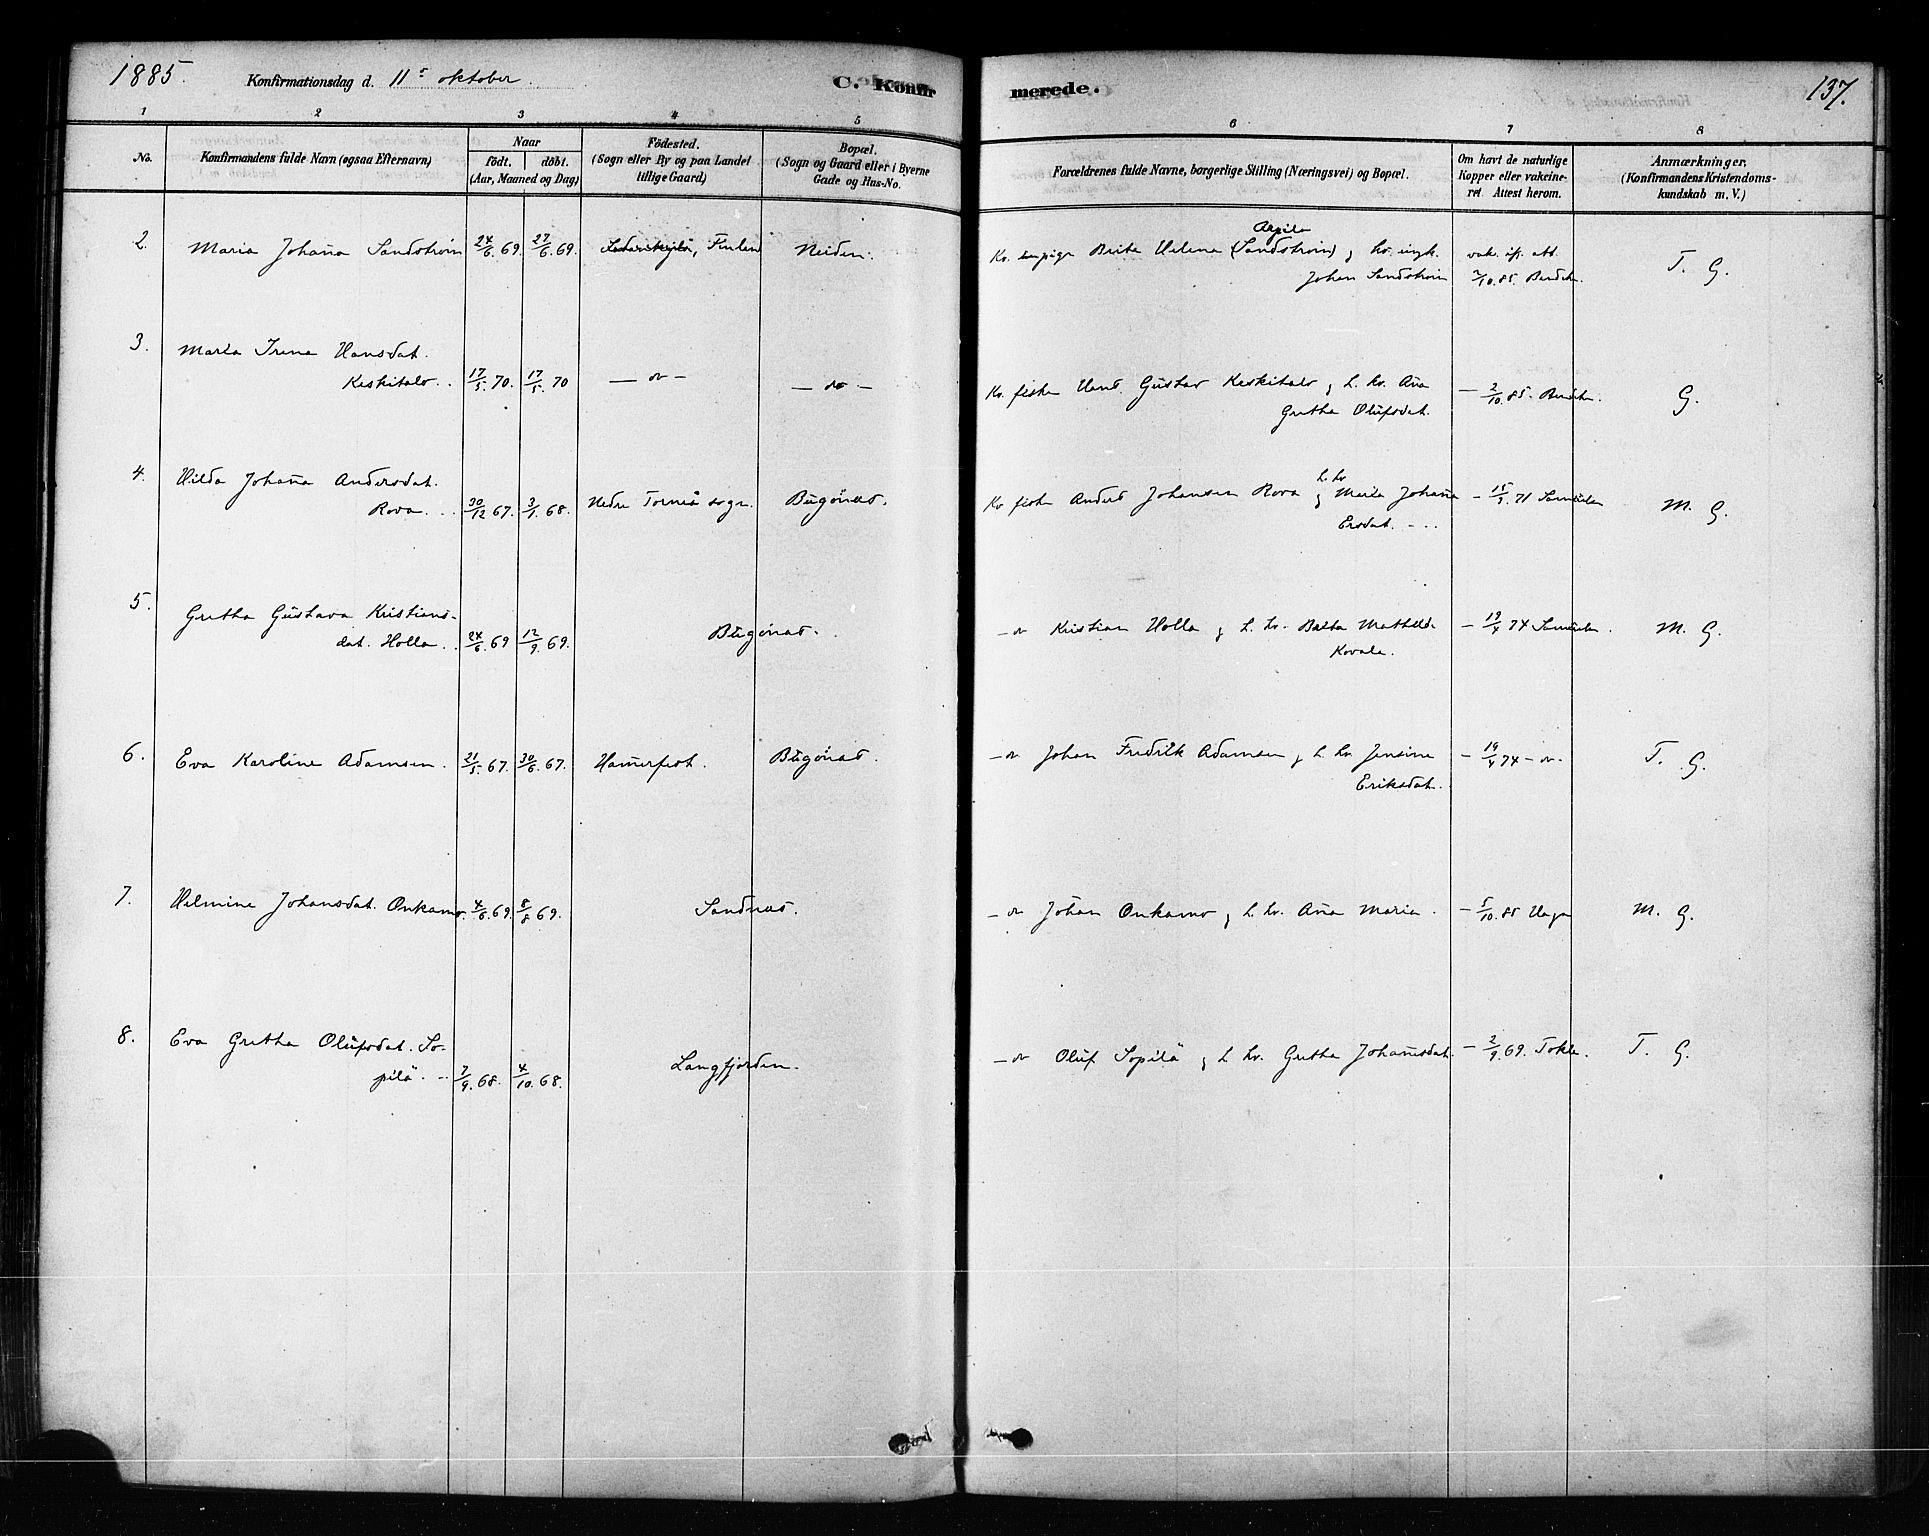 1885. Konfirmationsdag d. 11 s oktober. C. Konfir
merede. 137.
1 2 3 4 5 6 7 8
No. Konfirmandens fulde Navn (ogsaa Efternavn) Naar födt. döbt. (Aar, Maaned og Dag)
Födested. (Sogn eller By og paa Landet tillige Gaard)
Bopæl. (Sogn og Gaard eller i Byerne Gade og Hus-No.
Forældrenes fulde Navne, borgerlige Stilling (Næringsvei) og Bopæl.
Om havt de naturlige Kopper eller vakcineret. Attest herom.
Anmærkninger. (Konfirmandens Kristendomskundskab m. V.)
2. Maria Johan̄a Sandström 24/6 69. 27/6 69. Finland Neiden.
Kv. Brita Helena (Sandström) g kv.
Johan Sandström
vak. att.
2/10. 85.
T. G.
3. Maria Irena Hansdat.
Keskitalo. 17/5. 70. 17/5. 70 — do — — do —
Kv. fisker Hans Gustav Keskitalo g h. kv. An̄a
Gretha Olufsdat.
— 2/10. 85.
G.
4. Hilda Johan̄a Andersdat.
Rova. 30/12 67. 3/1. 68. Nedre Torneå sogn. Bugönæs.
Kv fisker Anders Johansen Rova g h. kv Maria Johan̄a
Ersdat.
— 15/3. 71
M. G.
5. Gretha Gustava Kristians-
dat. Holla. 24/6. 69 12/9. 69. Bugönæs.
— do Kristian Holla g h. kv. Brita Mathilde
Kovala.
— 19/4 74
M. G.
6. Eva Karoline Adamsen. 21/5. 67. 30/6. 67. Ham̄erfest. Bugönæs.
— do Johan Fredrik Adamsen g h. kv. Jensine
Eriksdat.
— 19/4 74 — do.
T. G.
7. Helmine Johansdat. Onkamo. 4/6. 69. 8/8 69. Sandnæs.
— do Johan Onkamo g h. kv. An̄a Maria.
— 5/10. 85
M. G.
8. Eva Gretha Olufsdat. So-
pilä. 7/9. 68. 4/10. 68. Langfjorden.
— do Oluf Sopilä g h. kv. Gretha Johan̄esdat.
— 2/9. 69. Tokle.
T. G.